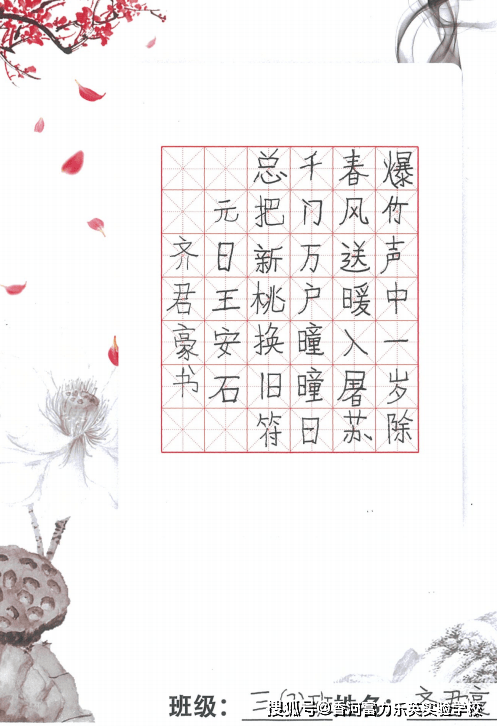 爆竹声中一岁除
春风送暖入屠苏
千门万户曈曈日
总把新桃换旧符
元日王安石
齐君豪书
班级：三(2)班姓名：齐君豪
搜狐号@香河富力乐英实验学校